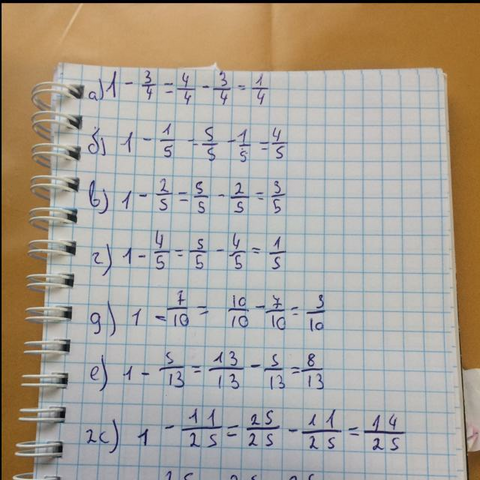 а) 1 - 3/4 = 4/4 - 3/4 = 1/4
б) 1 - 1/5 = 5/5 - 1/5 = 4/5
в) 1 - 2/5 = 5/5 - 2/5 = 3/5
г) 1 - 4/5 = 5/5 - 4/5 = 1/5
д) 1 - 7/10 = 10/10 - 7/10 = 3/10
е) 1 - 5/13 = 13/13 - 5/13 = 8/13
ж) 1 - 11/25 = 25/25 - 11/25 = 14/25